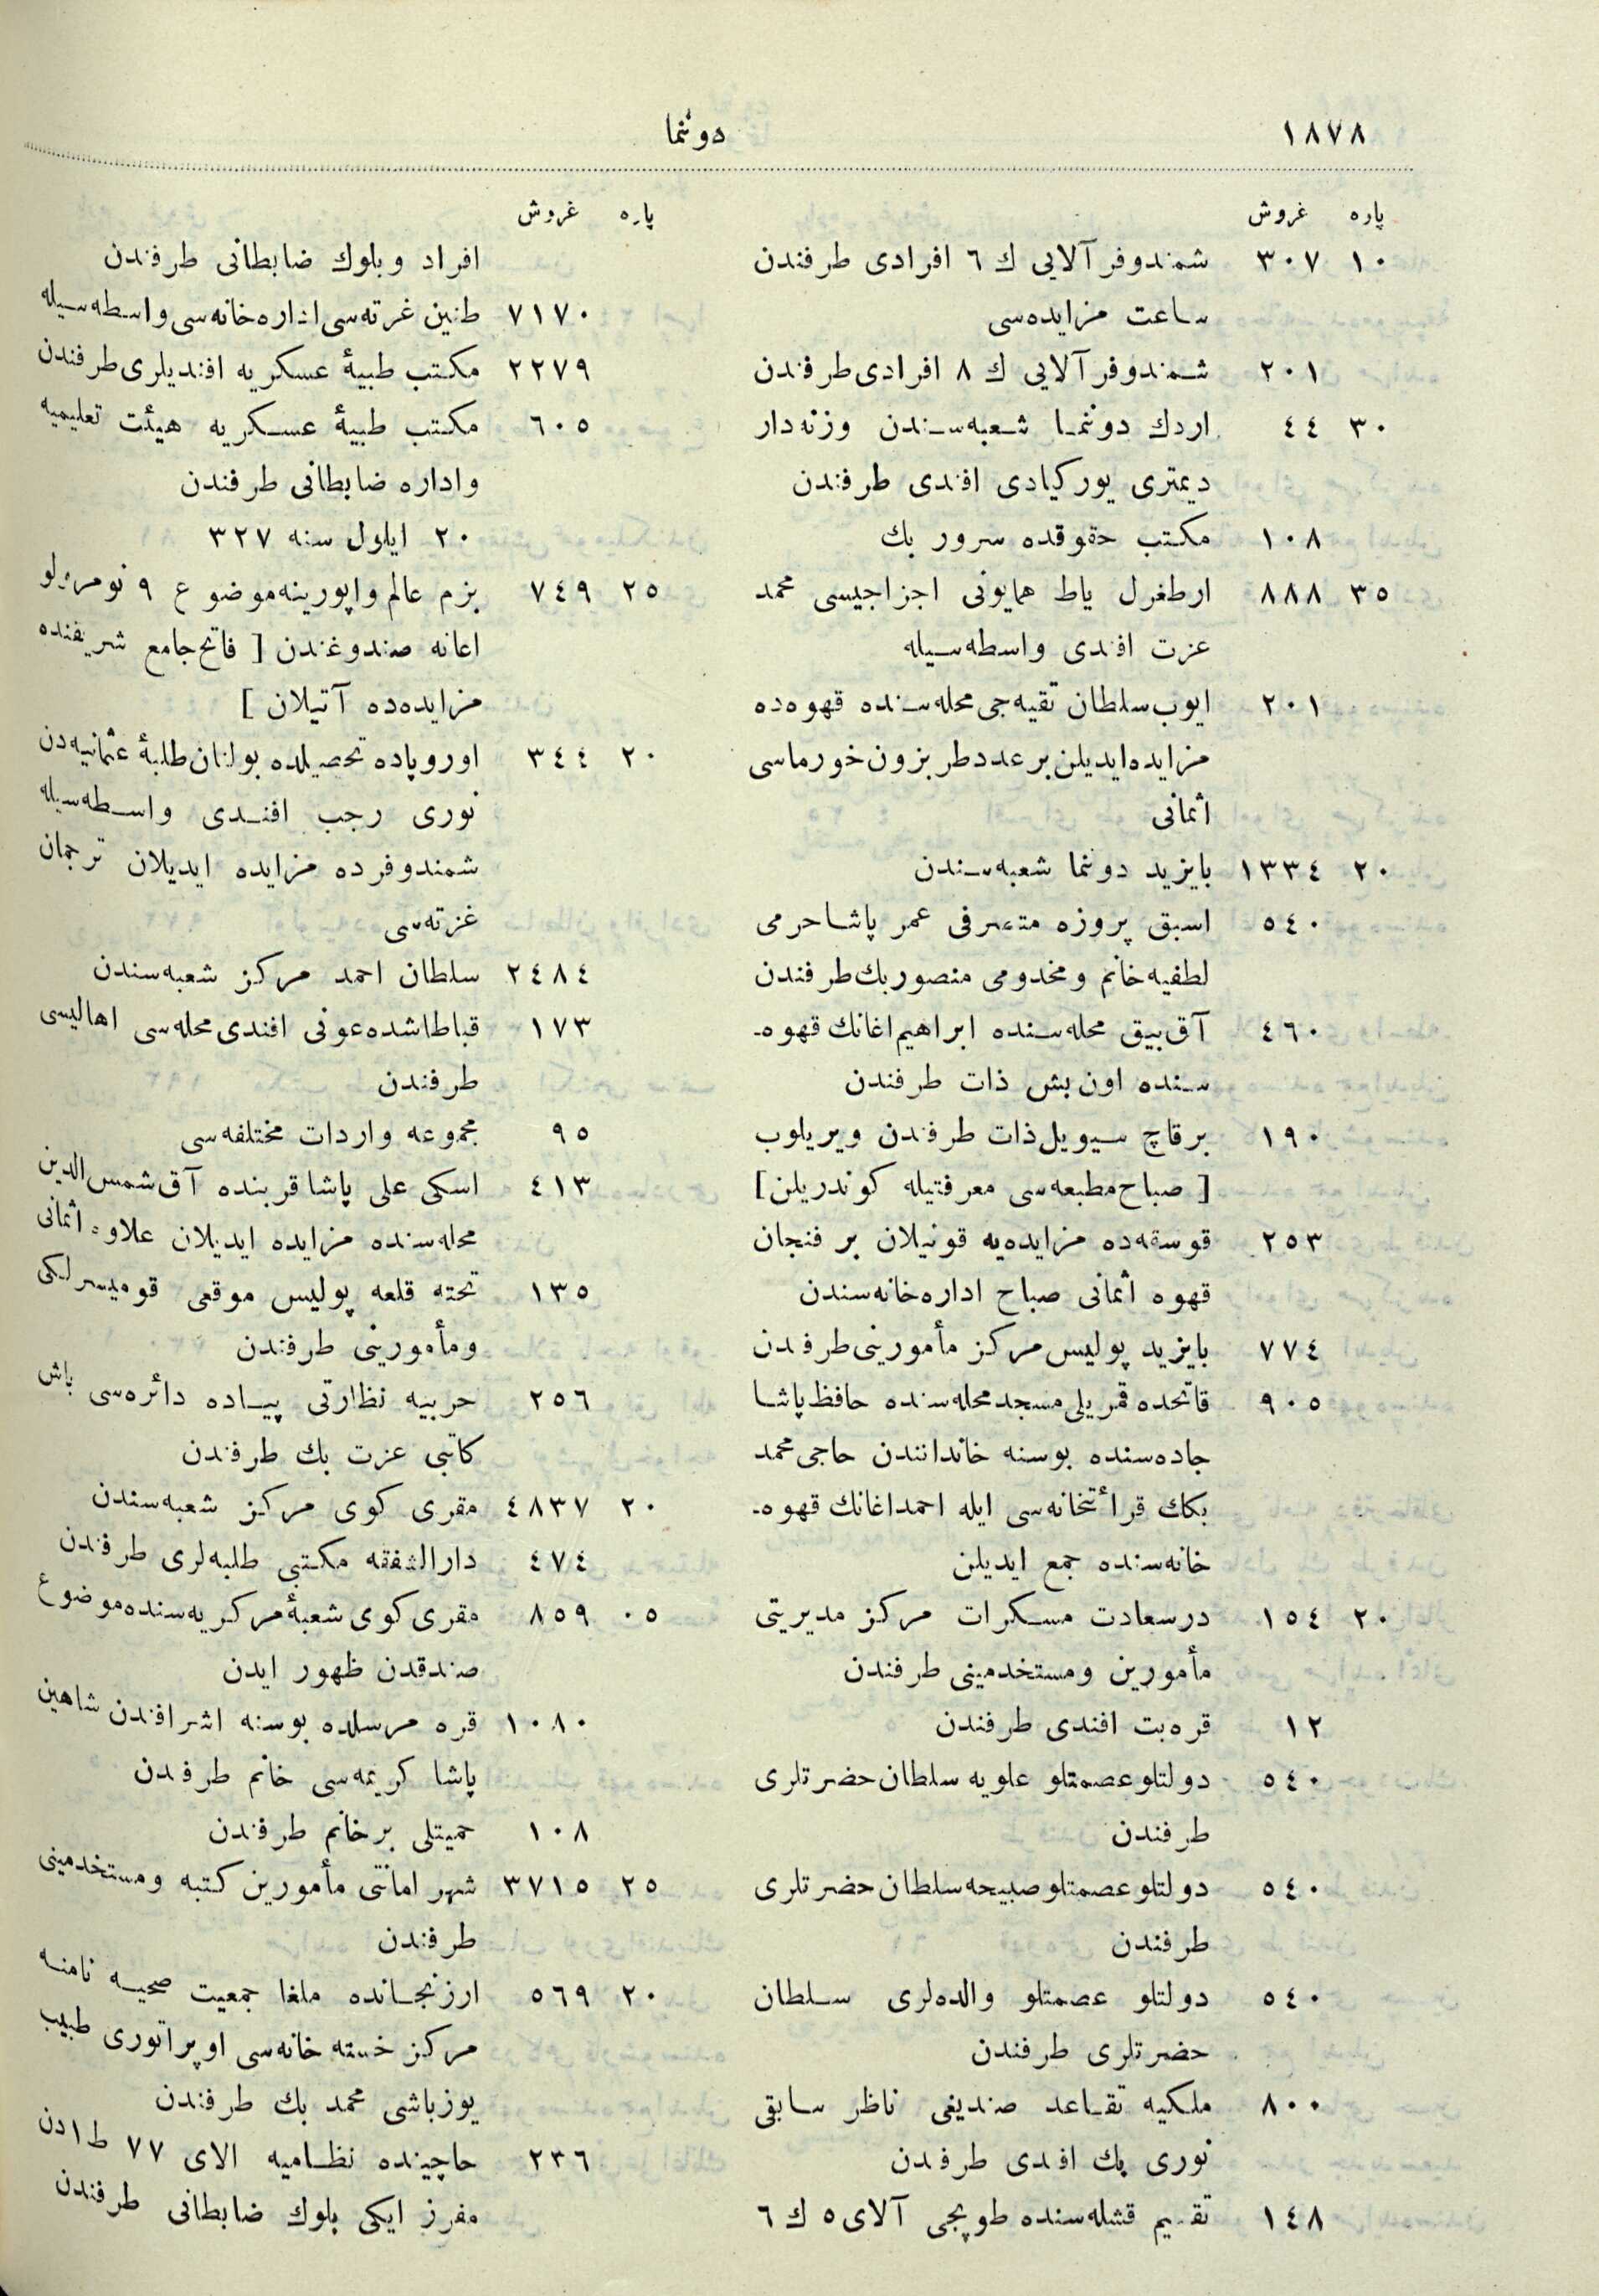 ١٨٧٨
دوننما
پاره غروش
١٠ ٣٠٧ شمندوفر آلايى ك ٦ افرادى طرفندن
ساعت مزايده‌سى
٢٠١ شمندوفر آلايى ك ٨ افرادى طرفندن
٣٠ ٤٤ اردك دوننما شعبه‌سندن وزنه‌دار
ديمترى يوركيادى افندى طرفندن
١٠٨ مكتب حقوقده سرور بك
٣٥ ٨٨٨ ارطغرل ياط همايونى اجزاجيسى محمد
عزت افندى واسطه‌سيله
٢٠١ ايوب سلطان تقيه‌جى محله‌سنده قهوه‌ده
مزايده ايديلن بر عدد طربزون خورماسى
اثمانى
٢٠ ١٣٣٤ بايزيد دوننما شعبه‌سندن
٥٤٠ اسبق پروزه متصرفى عمر پاشا حرمى
لطفيه خانم ومخدومى منصور بك طرفندن
٤٦٠ آق بيق محله‌سنده ابراهيم اغانك قهوه-
سنده اون بش ذات طرفندن
١٩٠ بر قاچ سيويل ذات طرفندن ويريلوب
[ صباح مطبعه‌سى معرفتيله كوندريلن ]
٢٥٣ قوسقه‌ده مزايده‌يه قونيلان بر فنجان
قهوه اثمانى صباح اداره‌خانه‌سندن
٧٧٤ بايزيد پوليس مركز مأمورينى طرفدن
٩٠٥ فاتحده قمريلى مسجد محله‌سنده حافظ پاشا
جاده‌سنده بوسنه خانداننندن حاجى محمد
بكك قرائتخانه‌سى ايله احمد اغانك قهوه-
خانه‌سنده جمع ايديلن
٢٠ ١٥٤ درسعادت مسكرات مركز مديريتى
مأمورين ومستخدمينى طرفندن
١٢ قره‌بت افندى طرفندن
٥٤٠ دولتلو عصمتلو علويه سلطان حضرتلرى
طرفندن
٥٤٠ دولتلو عصمتلو صبيحه سلطان حضرتلرى
طرفندن
٥٤٠ دولتلو عصمتلو والده‌لرى سلطان
حضرتلرى طرفندن
٨٠٠ ملكيه تقاعد صنديغى ناظر سابقى
نورى بك افدى طرفدن
١٤٨ تقسيم قشله‌سنده طوپجى آلاى ٥ ك ٦
پاره غروش
افراد وبلوك ضابطانى طرفندن
٧١٧٠ طنين غزته‌سى اداره‌خانه‌سى واسطه‌سيله
٢٢٧٩ مكتب طبيۀ عسكريه افنديلرى طرفندن
٦٠٥ مكتب طبيۀ عسكريه هيئت تعليميه
واداره ضابطانى طرفندن
٢٠ ايلول سنه ٣٢٧
٢٥ ٧٤٩ بزم عالم واپورينه موضوع ٩ نومرولو
اعانه صندوغندن [ فاتح جامع شريفنده
مزايده‌ده آتيلان ]
٢٠ ٣٤٤ اوروپاده تحصيلده بولنان طلبۀ عثمانيه‌دن
نورى رجب افندى واسطه‌سيله
شمندوفرده مزايده ايديلان ترجمان
غزته‌سى
٢٤٨٤ سلطان احمد مركز شعبه‌سندن
١٧٣ قباطاشده عونى افندى محله‌سى اهاليسى
طرفندن
٩٥ مجموعه واردات مختلفه‌سى
٤١٣ اسكى على پاشا قربنده آق شمس الدين
محله‌سنده مزايده ايديلان علاوه اثمانى
١٣٥ تحته قلعه پوليس موقعى قوميسرلكى
ومأمورينى طرفندن
٢٥٦ حربيه نظارتى پياده دائره‌سى باش
كاتبى عزت بك طرفندن
٢٠ ٤٨٣٧ مقرى كوى مركز شعبه‌سندن
٤٧٤ دارالشفقه مكتبى طلبه‌لرى طرفندن
٠٥ ٨٥٩ مقرى كوى شعبۀ مركزيه‌سنده موضوع
صندقدن ظهور ايدن
١٠٨٠ قره مرسلده بوسنه اشرافندن شاهين
پاشا كريمه‌سى خانم طرفدن
١٠٨ حميتلى بر خانم طرفندن
٢٥ ٣٧١٥ شهر امانتى مأمورين كتبه ومستخدمينى
طرفندن
٢٠ ٥٦٩ ارزنجانده ملغا جمعيت صحيه نامنه
مركز خسته خانه‌سى اوپراتورى طبيب
يوزباشى محمد بك طرفندن
٢٣٦ حاچينده نظاميه الاى ٧٧ ط ١ دن
مفرز ايكى بلوك ضابطانى طرفندن